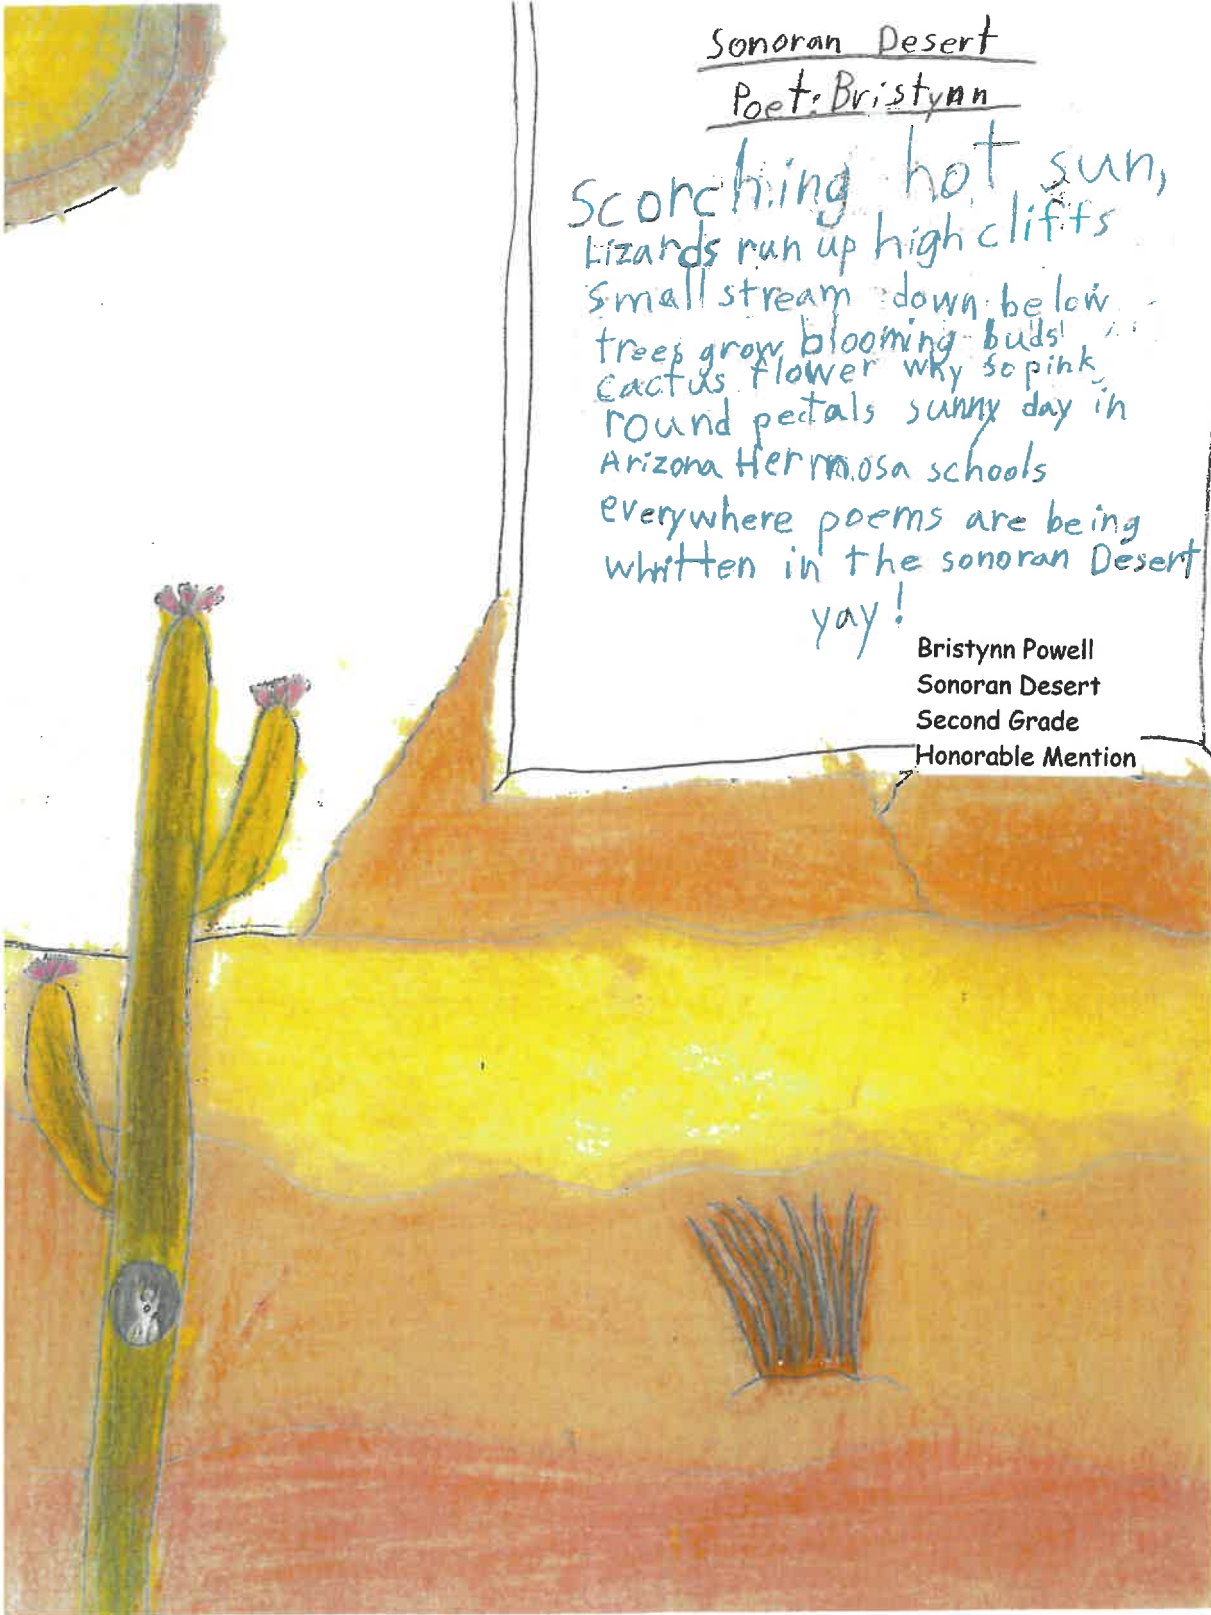 Sonoran Desert
Poet: Bristynn
Scorching hot sun,
Lizards run up high clifts
Small stream down below
trees grow blooming buds!
cactus flower why so pink
round pectals sunny day in
Arizona Hermosa schools
everywhere poems are being
whritten in the sonoran Desert
yay!
Bristynn Powell
Sonoran Desert
Second Grade
Honorable Mention